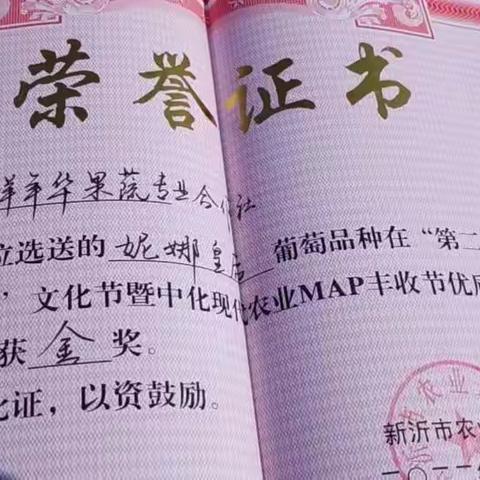 荣誉证书
年华果蔬专业合作社
选送的妮娜皇后葡萄品种在“第二
”文化节暨中化现代农业MAP丰收节优质
获金奖。
证，以资鼓励。
农业
新沂市农
二〇二